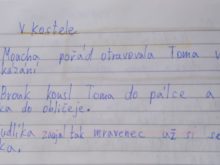 V kostele
Moucha pořád otravovala Toma v
kázání
Brouk kousl Toma do pálce a
ka do obličeje.
udlíka zaujal tak mravenec už si se
ka.